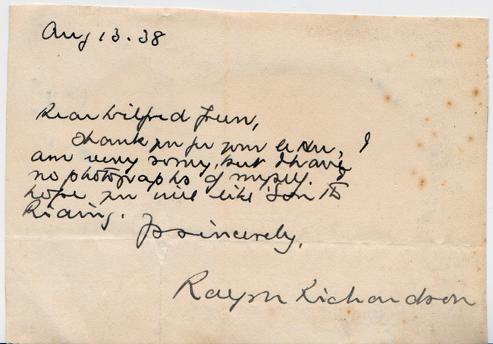 Aug 13. 38
Dear Wilfred
thank you for your letter, I
am very sorry, but I have
no photographs of myself. I
hope you will like "South
Riding.
Yrs sincerely,
Ralph Richardson